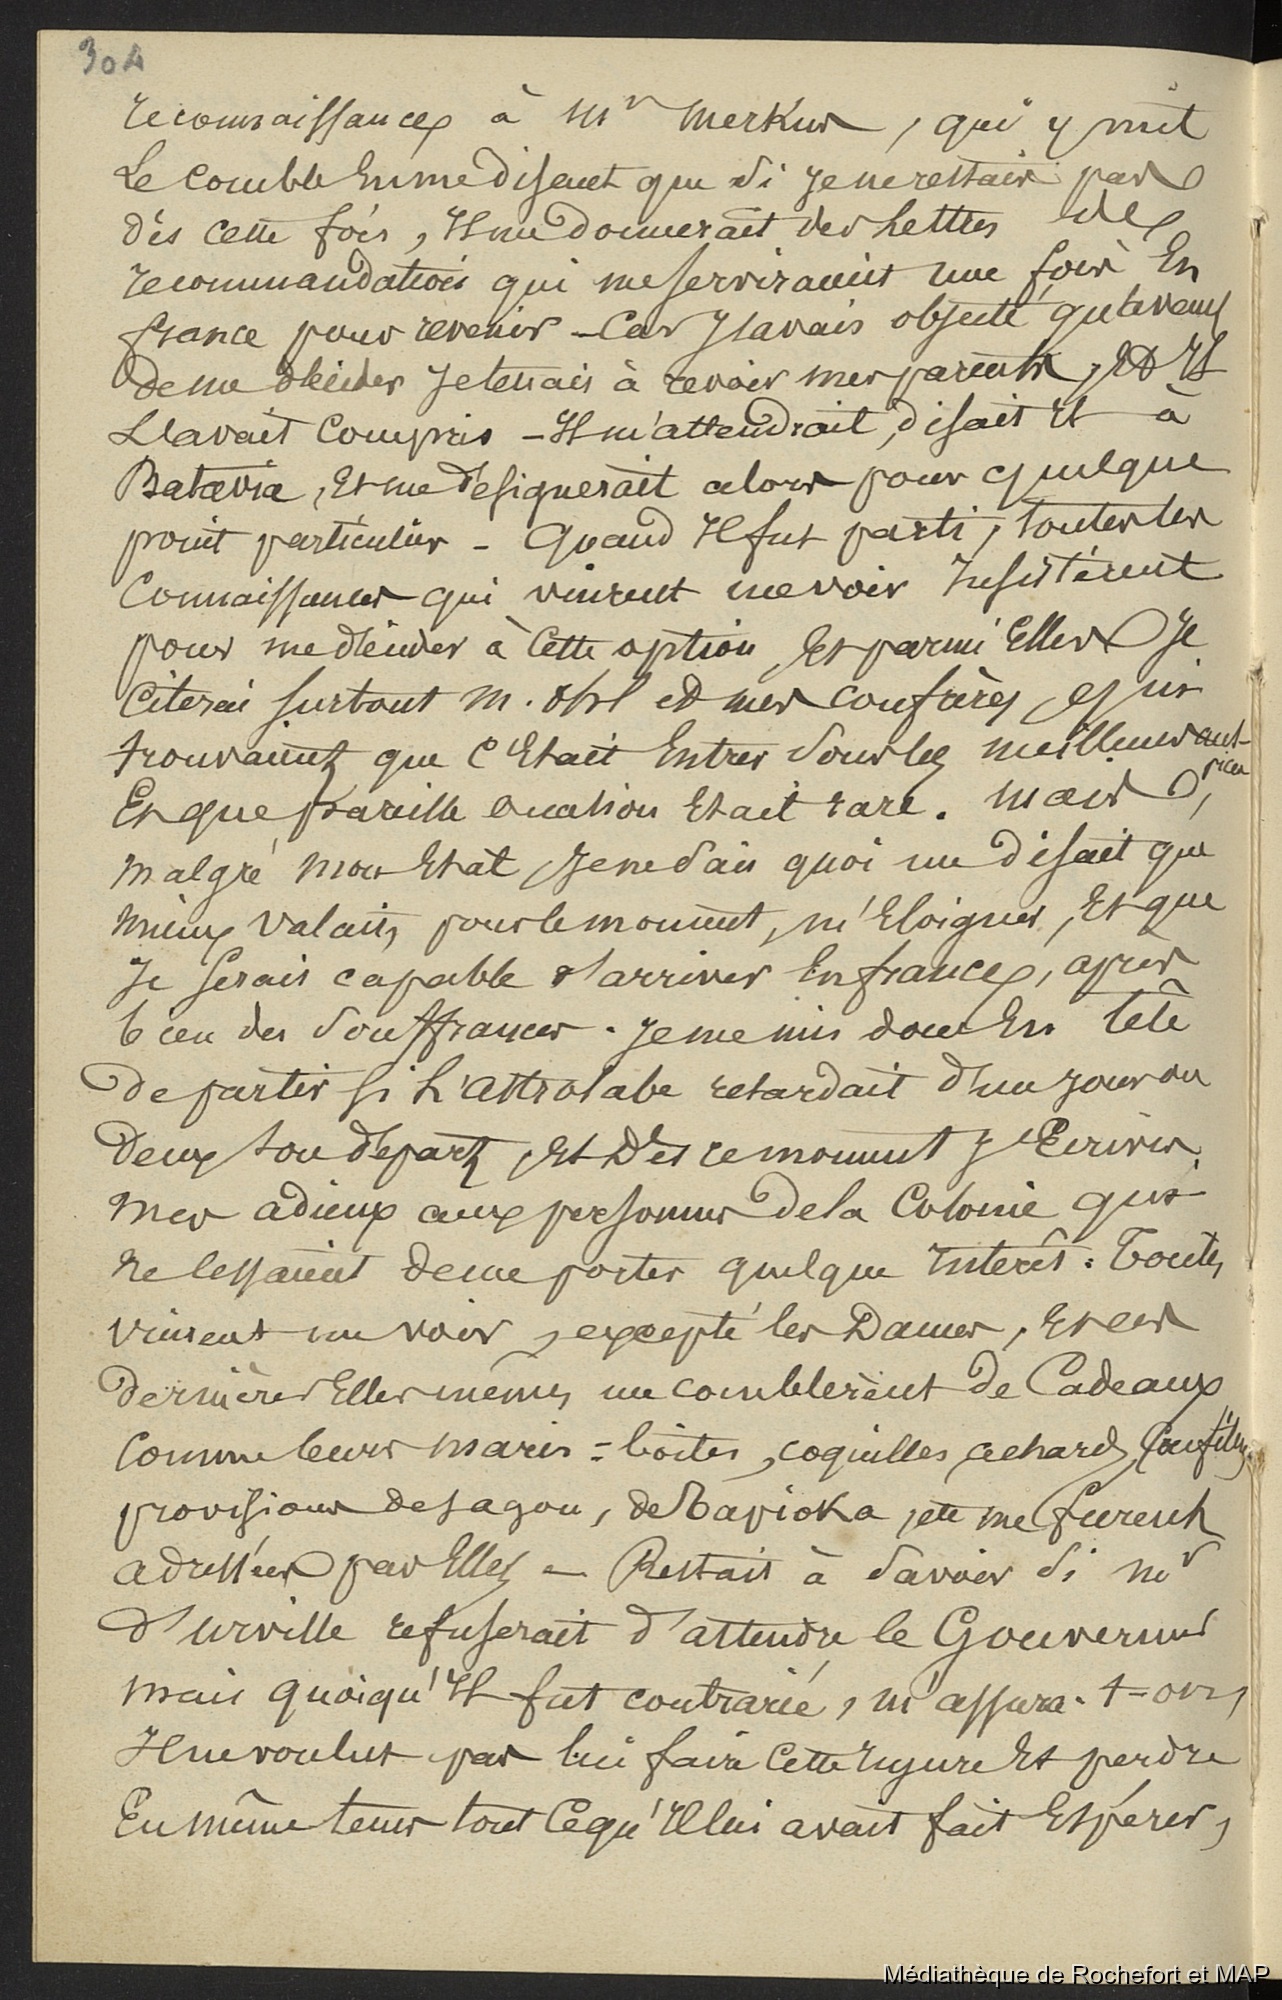 304
reconnaissances à Mr Merkus, qui y mit
Le comble En me disant que si Je ne restais pas
dès cette fois, Il me donnerait des Lettres de
recommandations qui me serviraient une fois En
france pour revenir - Car J'avais objecté qu'avant
de me décider Je tenais à revoir mes parents, Et Il
L'avait compris - Il m'attendrait, disait Il à
Batavia, Et me désignerait alors pour quelque
point particulier - Quand Il fut parti, toutes les
Connaissances qui vinrent me voir Insistèrent
pour me décider à Cette option, Et parmi Elles Je
Citerai surtout M. et mes confrères, qui
trouvaient que C'Etait Entrer sous les meilleurs aus-
pices
Et que pareille occasion Etait rare. Mais,
malgré mon Etat, Je ne sais quoi me disait que
mieux valait, pour le moment, m'Eloigner, Et que
Je serais capable d'arriver En france, après
bien des souffrances. Je me mis donc En tête
de partir si L'astrolabe retardait d'un jour ou
deux son départ, Et Dès ce moment J'Ecrivis
mes adieux aux personnes de la Colonie qui
ne cessaient de me porter quelque Interêt. Toutes
vinrent me voir, excepté les Dames, Et ces
dernières Elles mêmes, me comblèrent de Cadeaux
Comme leurs maris = boîtes, coquilles, achards, Confitures,
provisions de sagou, de Tapioka, etc me furent
adressées par Elles - Restait à savoir si Mr
d'urville refuserait d'attendre le Gouverneur
mais quoiqu'Il fut contrarié, m'assura-t-on,
Il ne voulut pas lui faire Cette Injure Et perdre
En même tems tout Ce qu'Il lui avait fait Espérer,
Médiathèque de Rochefort et MAP